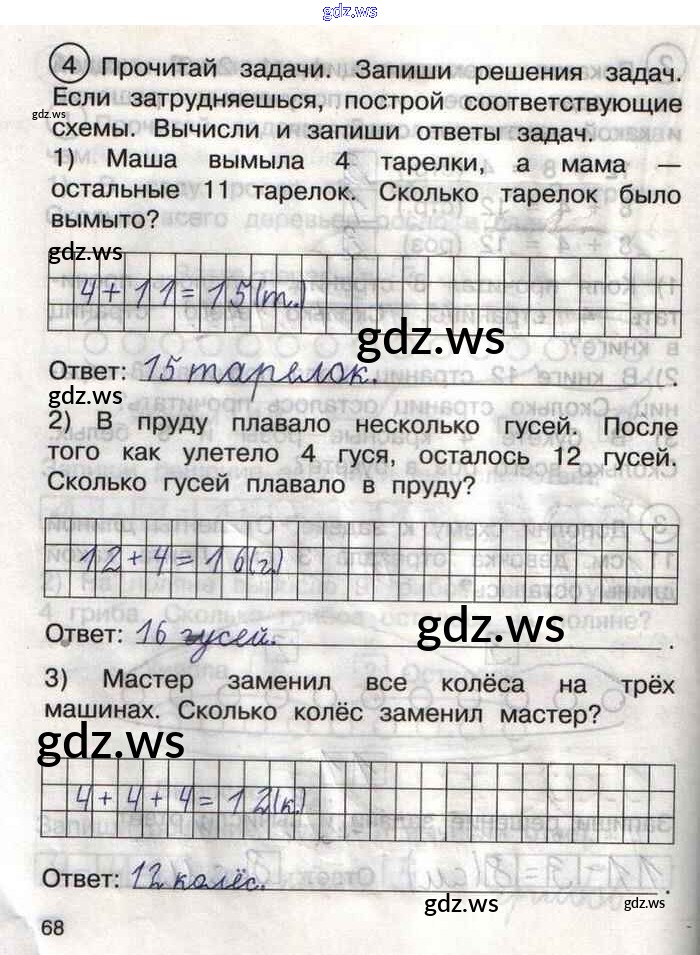 gdz.ws
4 Прочитай задачи. Запиши решения задач.
Если затрудняешься, построй соответствующие
gdz.ws
схемы. Вычисли и запиши ответы задач.
1) Маша вымыла 4 тарелки, а мама —
остальные 11 тарелок. Сколько тарелок было
вымыто?
gdz.ws
4 + 11 = 15 (т.)
gdz.ws
Ответ: 15 тарелок.
gdz.ws
2) В пруду плавало несколько гусей. После
того как улетело 4 гуся, осталось 12 гусей.
Сколько гусей плавало в пруду?
12 + 4 = 16 (г.)
gdz.ws
Ответ: 16 гусей.
3) Мастер заменил все колёса на трёх
машинах. Сколько колёс заменил мастер?
gdz.ws
4 + 4 + 4 = 12 (к.)
Ответ: 12 колёс.
gdz.ws
gdz.ws
68